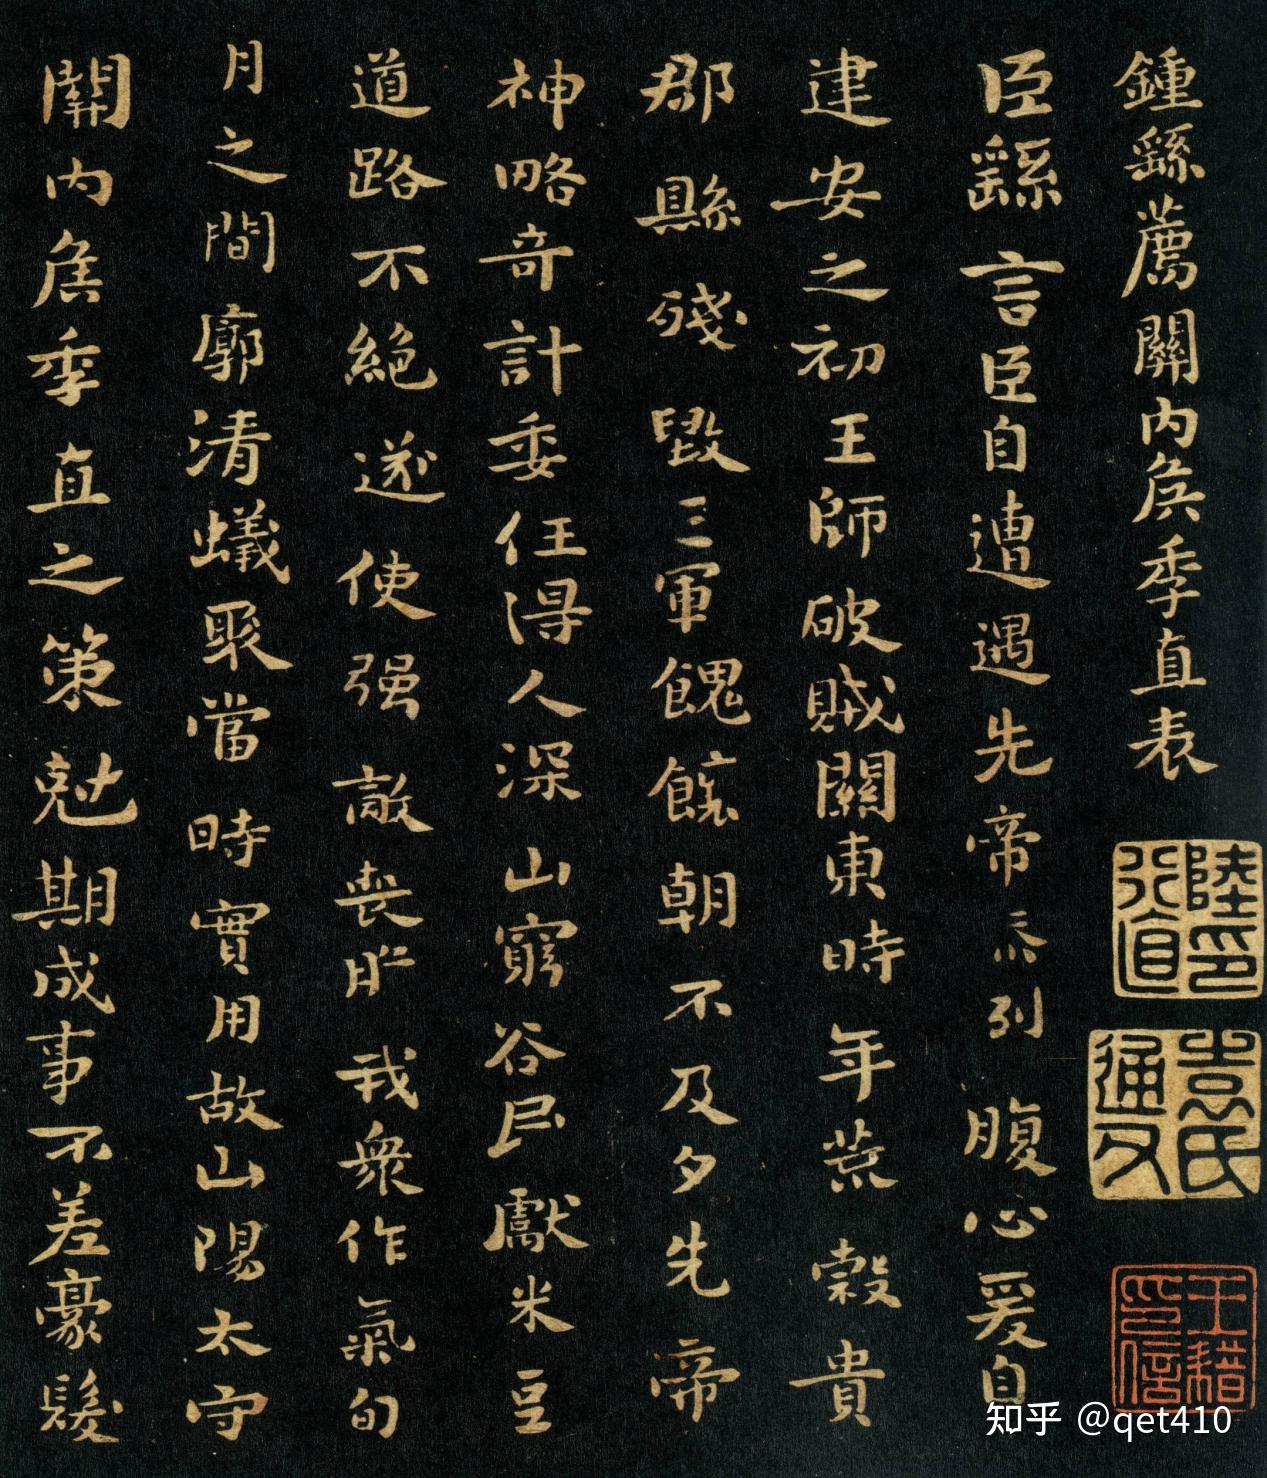 鍾繇薦關內侯季直表
臣繇言臣自遭遇先帝忝列腹心爰自
建安之初王師破賊關東時年荒穀貴
郡縣殘毀三軍餽饟朝不及夕先帝
神略奇計委任得人深山窮谷民獻米豆
道路不絕遂使强敵喪膽我衆作氣旬
月之間廓清蟻聚當時實用故山陽太守
關內侯季直之策剋期成事不差豪髮
陸行直印
袁氏通父
王藉印信
知乎 @qet410